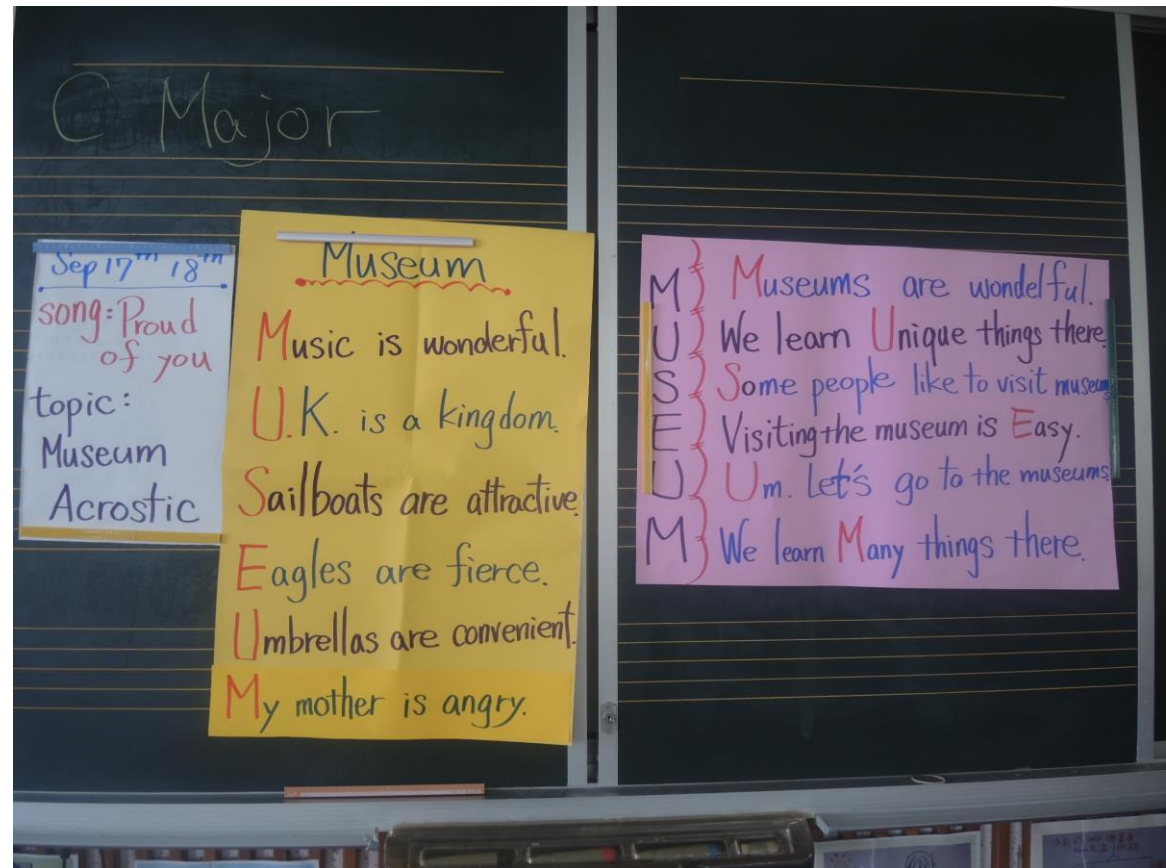 C Major
Sep 17th 18th
song: Proud
of you
topic:
Museum
Acrostic
Museum
Music is wonderful.
U.K. is a kingdom.
Sailboats are attractive.
Eagles are fierce.
Umbrellas are convenient.
My mother is angry.
M Museums are wondelful.
U We learn Unique things there.
S Some people like to visit museum
E Visiting the museum is Easy.
U Um. Let's go to the museums
M We learn Many things there.